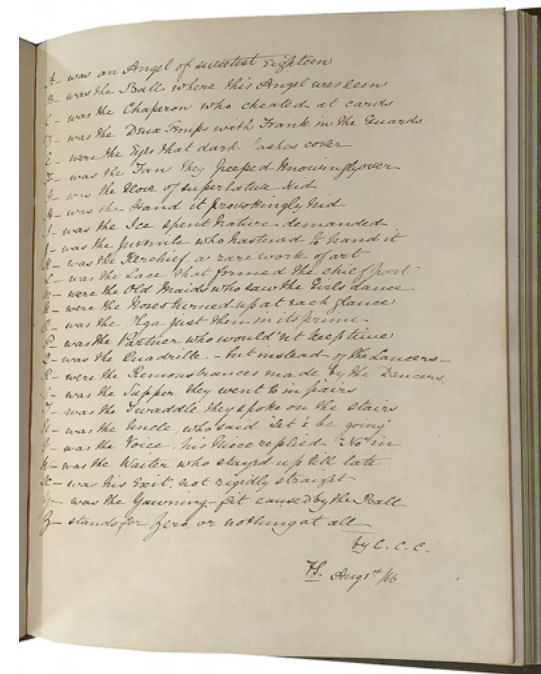 A - was an Angel of sweetest Eighteen
B - was the Ball where this Angel was seen
C - was the Chaperon who cheated at cards
D - was the Deux Temps with Frank in the Guards
E - were the Eyes that dark lashes cover
F - was the Fan they peeped knowingly over
G - was the Glove of superlative kid
H - was the Hand it provokingly hid
I - was the Ice spent Nature demanded
J - was the juvenile who hastened to hand it
K - was the Kerchief a rare work of art
L - was the Lace that formed the chief part
M - were the Old Maids who saw the Girls dance
N - were the Noses turned up at each glance
O - was the Olga just then in its prime -
P - was the Partner who would'nt keep time
Q - was the Quadrille - but instead of the Lancers -
R - were the Remonstrances made by the Dancers,
S - was the Supper they went to in pairs
T - was the Twaddle they spoke on the stairs
U - was the Uncle, who said 'let's be going'
V - was the Voice his Niece replied 'No' in
W - was the Waiter who stayed up till late
X - was his Exit, not rigidly straight
Y - was the Yawning-fit caused by the Ball
Z - stands for Zero, or nothing at all
by C. C. C.
Augst /66